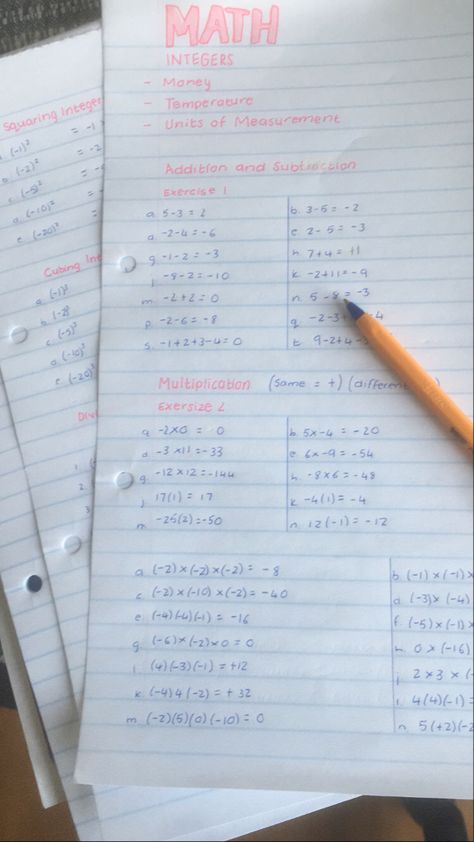 MATH
INTEGERS
- Money
- Temperature
- Units of Measurement
Addition and Subtraction
Exercise 1
a. 5-3 = 2
b. 3-5 = -2
d. -2-4 = -6
e. 2-5 = -3
g. -1-2 = -3
h. 7+4 = +1
j. -8-2 = -10
k. -2+11 = -9
m. -2+2 = 0
n. 5-8 = -3
p. -2-6 = -8
q. -2-3+ -4
s. -1+2+3-4 = 0
t. 9-2+4-
Multiplication (same = +) (different
Exersize 2
a. -2x0 = 0
b. 5x-4 = -20
d. -3x11 = -33
e. 6x-9 = -54
g. -12x12 = -144
h. -8x6 = -48
j. 17(1) = 17
k. -4(1) = -4
m. -25(2) = -50
n. 12(-1) = -12
a. (-2)x(-2)x(-2) = -8
b. (-1)x(-1)x
c. (-2)x(-10)x(-2) = -40
d. (-3)x(-4)
e. (-4)(-4)(-1) = -16
f. (-5)x(-1)x
g. (-6)x(-2)x0 = 0
h. 0x(-16)
i. (4)(-3)(-1) = +12
j. 2x3x(-
k. (-4)4(-2) = +32
l. 4(4)(-1) =
m. (-2)(5)(0)(-10) = 0
n. 5(+2)(-2
Squaring Integer
. (-1)² = -1
b. (-2)² = -2
c. (-5)² =
d. (-10)² =
e. (-20)² =
Cubing Int
a. (-1)³
b. (-2)³
c. (-5)³
d. (-10)³
e. (-20)³
Divi
1.
2.
3